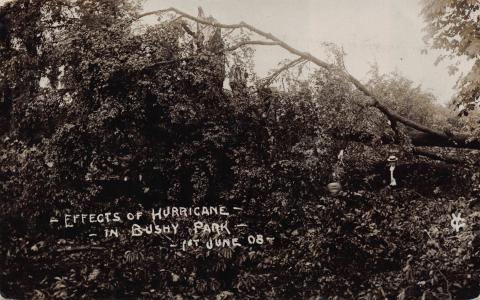 - EFFECTS OF HURRICANE -
- IN BUSHY PARK -
- 1ST JUNE 08 -